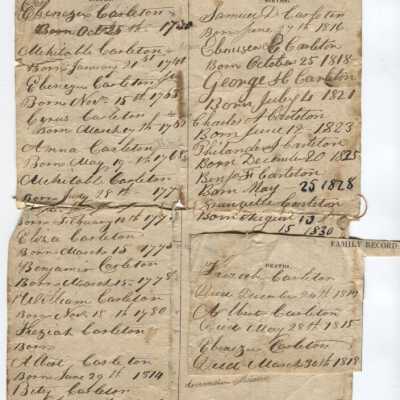 Ebenezer Carleton
Born Oct 25th 1730
Mehitable Carleton
Born January 21st 1741
Ebenezer Carleton
Born Nov. 15th 1763
Cyrus Carleton
Born March 17th 1765
Anna Carleton
Born May 19th 1768
Mehitabel Carleton
Born July 28th 177
Born February 11th 1773
Eliza Carleton
Born March 13 1775
Benjamin Carleton
Born March 15 1778
William Carleton
Born Nov 18th 1780
Keziah Carleton
Born
Albert Carleton
Born June 29th 1814
Betsy Carleton
BIRTHS.
Samuel D Carleton
Born June 17th 1816
Ebenezer C Carleton
Born October 25 1818
George H Carleton
Born July 4 1821
Charles A Carleton
Born June 12 1823
Philander Carleton
Born December 20 1825
Benj F Carleton
Born May 25 1828
Granville Carleton
Born August 13
15 1830
FAMILY RECORD
DEATHS.
Keziah Carleton
Died December 20th 1814
Albert Carleton
Died May 28th 1815
Ebenezer Carleton
Died March 30th 1818